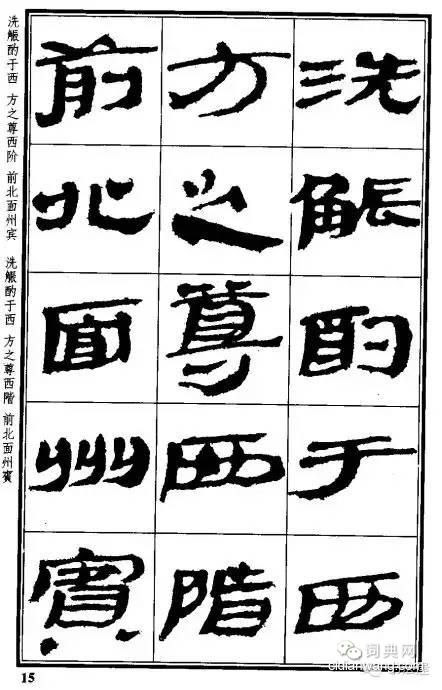 洗觶酌于西
方之尊西階
前北面州賓
洗觶酌于西 方之尊西阶 前北面州宾 洗觶酌于西 方之尊西階 前北面州賓
15
词典网
cidianwang.com